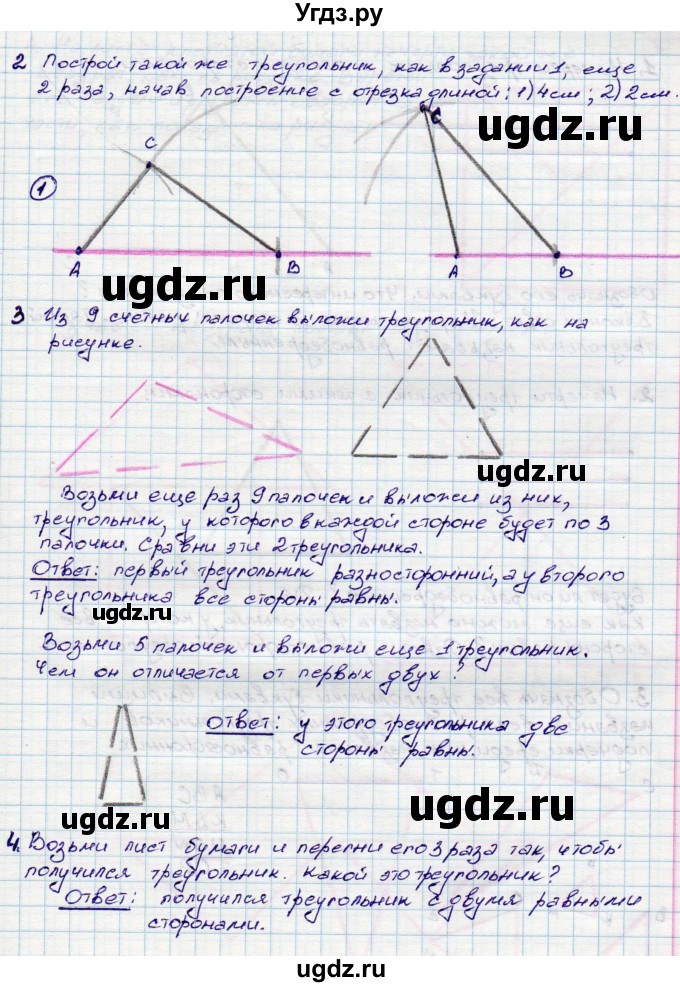 Угдз.ру
2 Построй такой же треугольник, как в задании 1, еще
2 раза, начав построение с отрезка длиной: 1) 4 см; 2) 2 см.
ugdz.ru
C
C
1
A
B
A
B
ugdz.ru
3 Из 9 счетных палочек выложи треугольник, как на
рисунке.
ugdz.ru
Возьми еще раз 9 палочек и выложи из них,
треугольник, у которого в каждой стороне будет по 3
палочки. Сравни эти 2 треугольника.
Ответ: первый треугольник разносторонний, а у второго
треугольника все стороны равны.
ugdz.ru
Возьми 5 палочек и выложи еще 1 треугольник.
Чем он отличается от первых двух?
Ответ: у этого треугольника две
стороны равны.
ugdz.ru
ugdz.ru
4. Возьми лист бумаги и перегни его 3 раза так, чтобы
получился треугольник. Какой это треугольник?
Ответ: получился треугольник с двумя равными
сторонами.
ugdz.ru